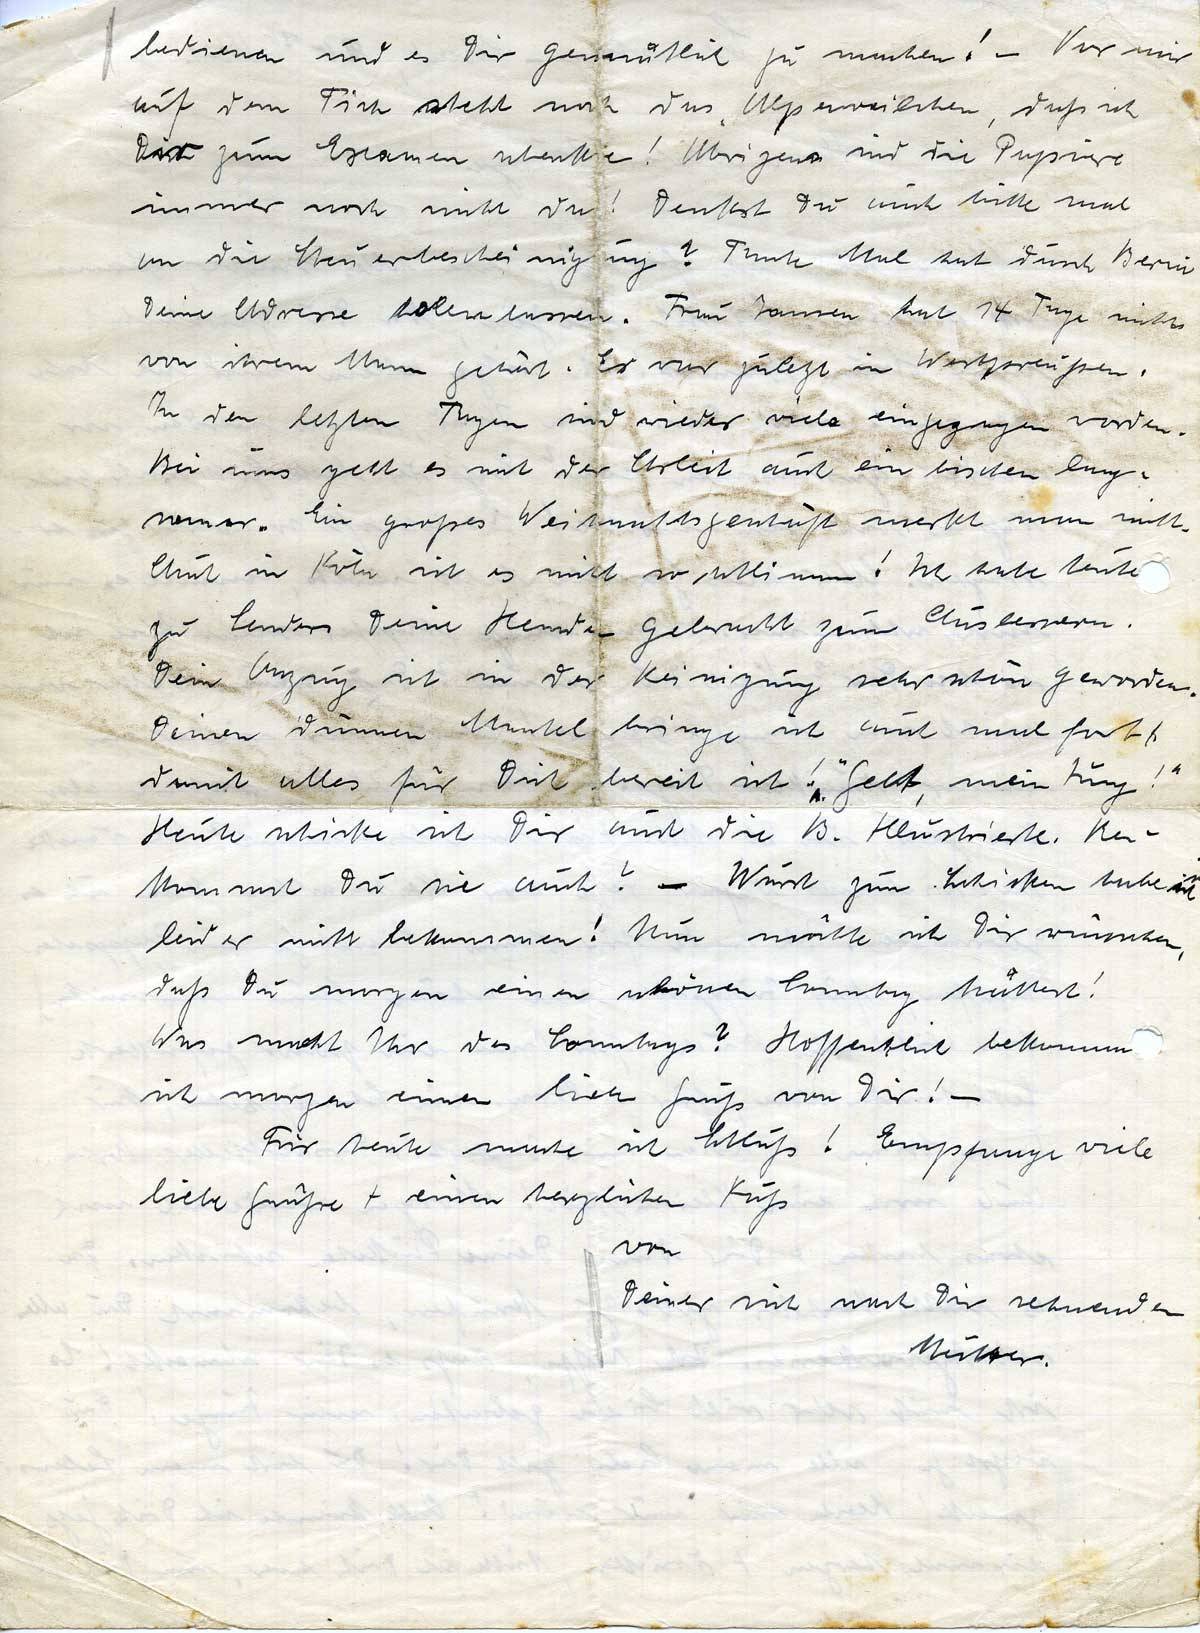 bedienen und es Dir gemütlich zu machen! – Vor mir
auf dem Tisch steht noch das Alpenveilchen, daß ich
Dir zum Examen schenkte! Übrigens sind die Papiere
immer noch nicht da! Denkst Du auch bitte mal
an die Steuerbescheinigung? Tante Mal hat durch
Deine Adresse holen lassen. Frau Jansen hat 14 Tage nichts
von ihrem Mann gehört. Er war zuletzt in Westpreußen.
In den letzten Tagen sind wieder viele eingezogen worden.
Bei uns geht es mit der Arbeit auch ein bischen lang-
samer. Ein großes Weihnachtsgeschäft merkt man nicht.
Auch in Köln ist es nicht so schlimm! Ich habe heute
zu Lenders Deine Hemden gebracht zum Ausbessern.
Dein Anzug ist in der Reinigung sehr schön geworden.
Deinen dünnen Mantel bringe ich auch mal fort,
damit alles für Dich bereit ist! "Gell, mein Jung!"
Heute schicke ich Dir auch die B. Illustrierte. Be-
kommst Du sie auch? – Wurst zum Schicken habe ich
leider nicht bekommen! Nun möchte ich Dir wünschen,
daß Du morgen einen schönen Sonntag hättest!
Was macht Ihr des Sonntags? Hoffentlich bekomme
ich morgen einen lieben Gruß von Dir! –
Für heute mache ich Schluß! Empfange viele
liebe Grüße + einen herzlichen Kuß
von
Deiner sich nach Dir sehnenden
Mutter.